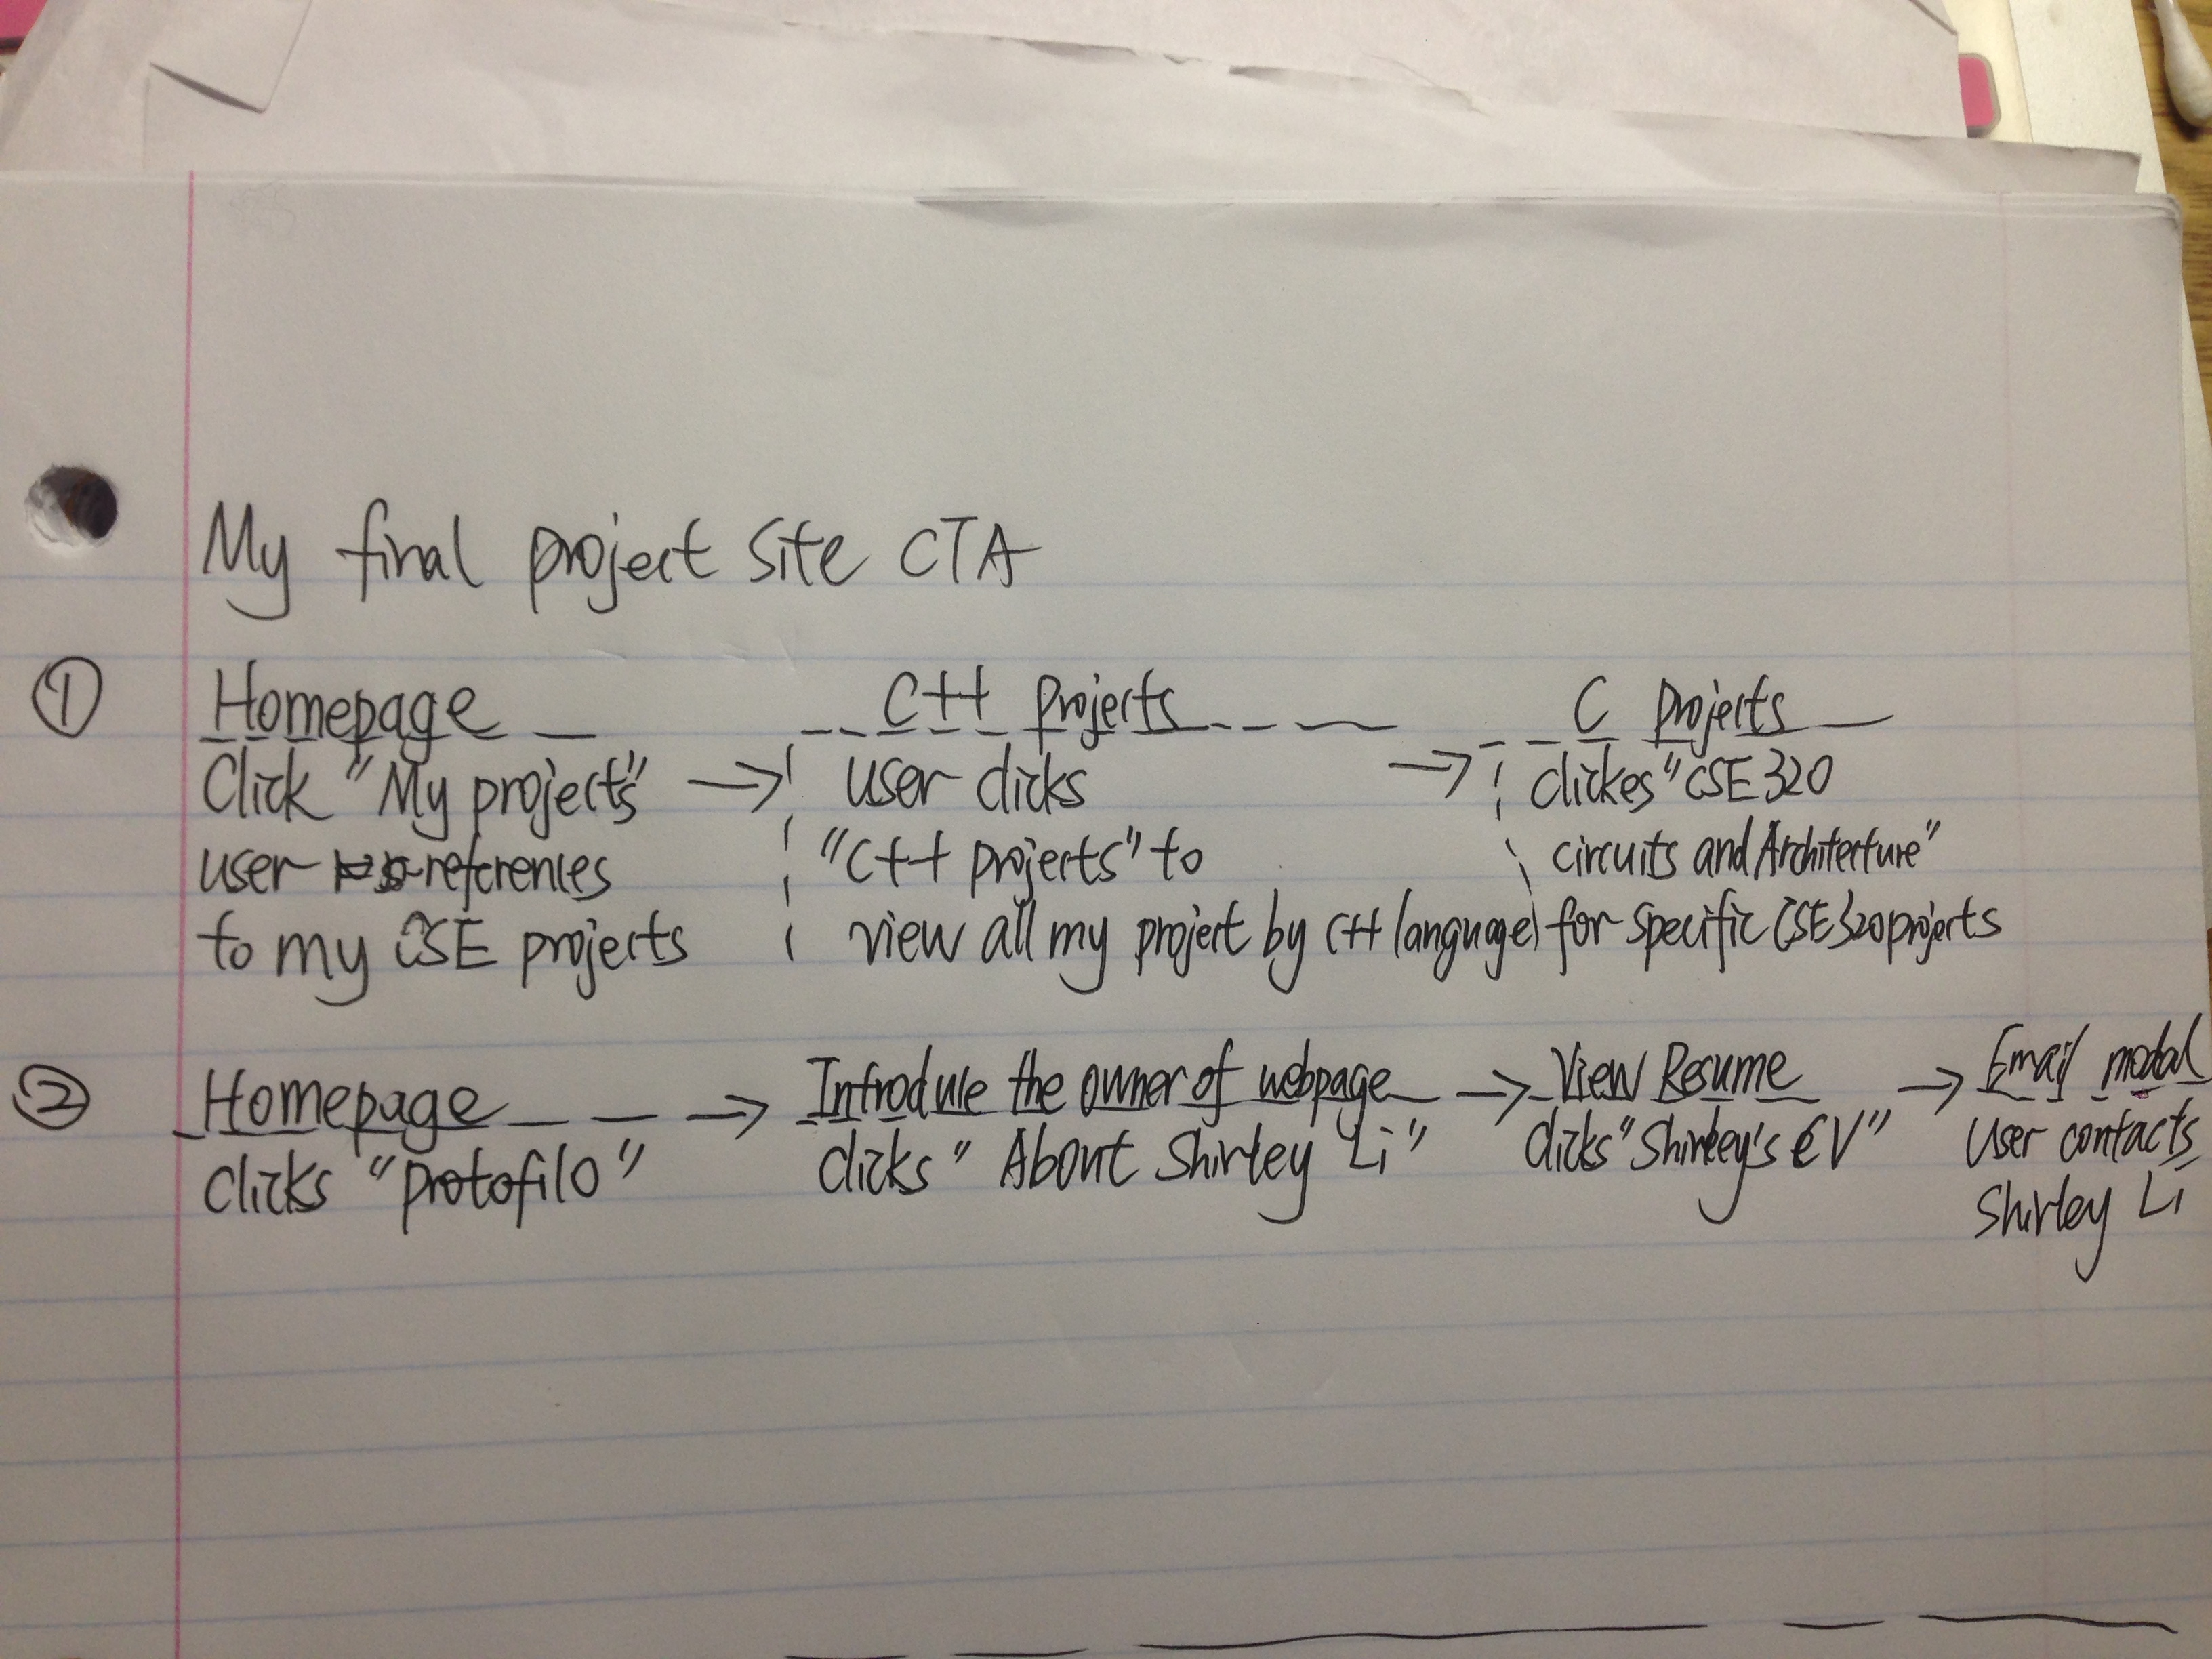 My final project site CTA
① Homepage
Click "My projects"
user references
to my CSE projects
→ C++ projects
user clicks
"C++ projects" to
view all my project by C++ language
→ C projects
clickes "CSE 320
circuits and Architecture"
for specific CSE 320 projects
② Homepage
clicks "protofilo"
→ Introduce the owner of webpage
clicks "About Shirley Li"
→ View Resume
clicks "Shirley's CV"
→ Email modal
user contacts
Shirley Li